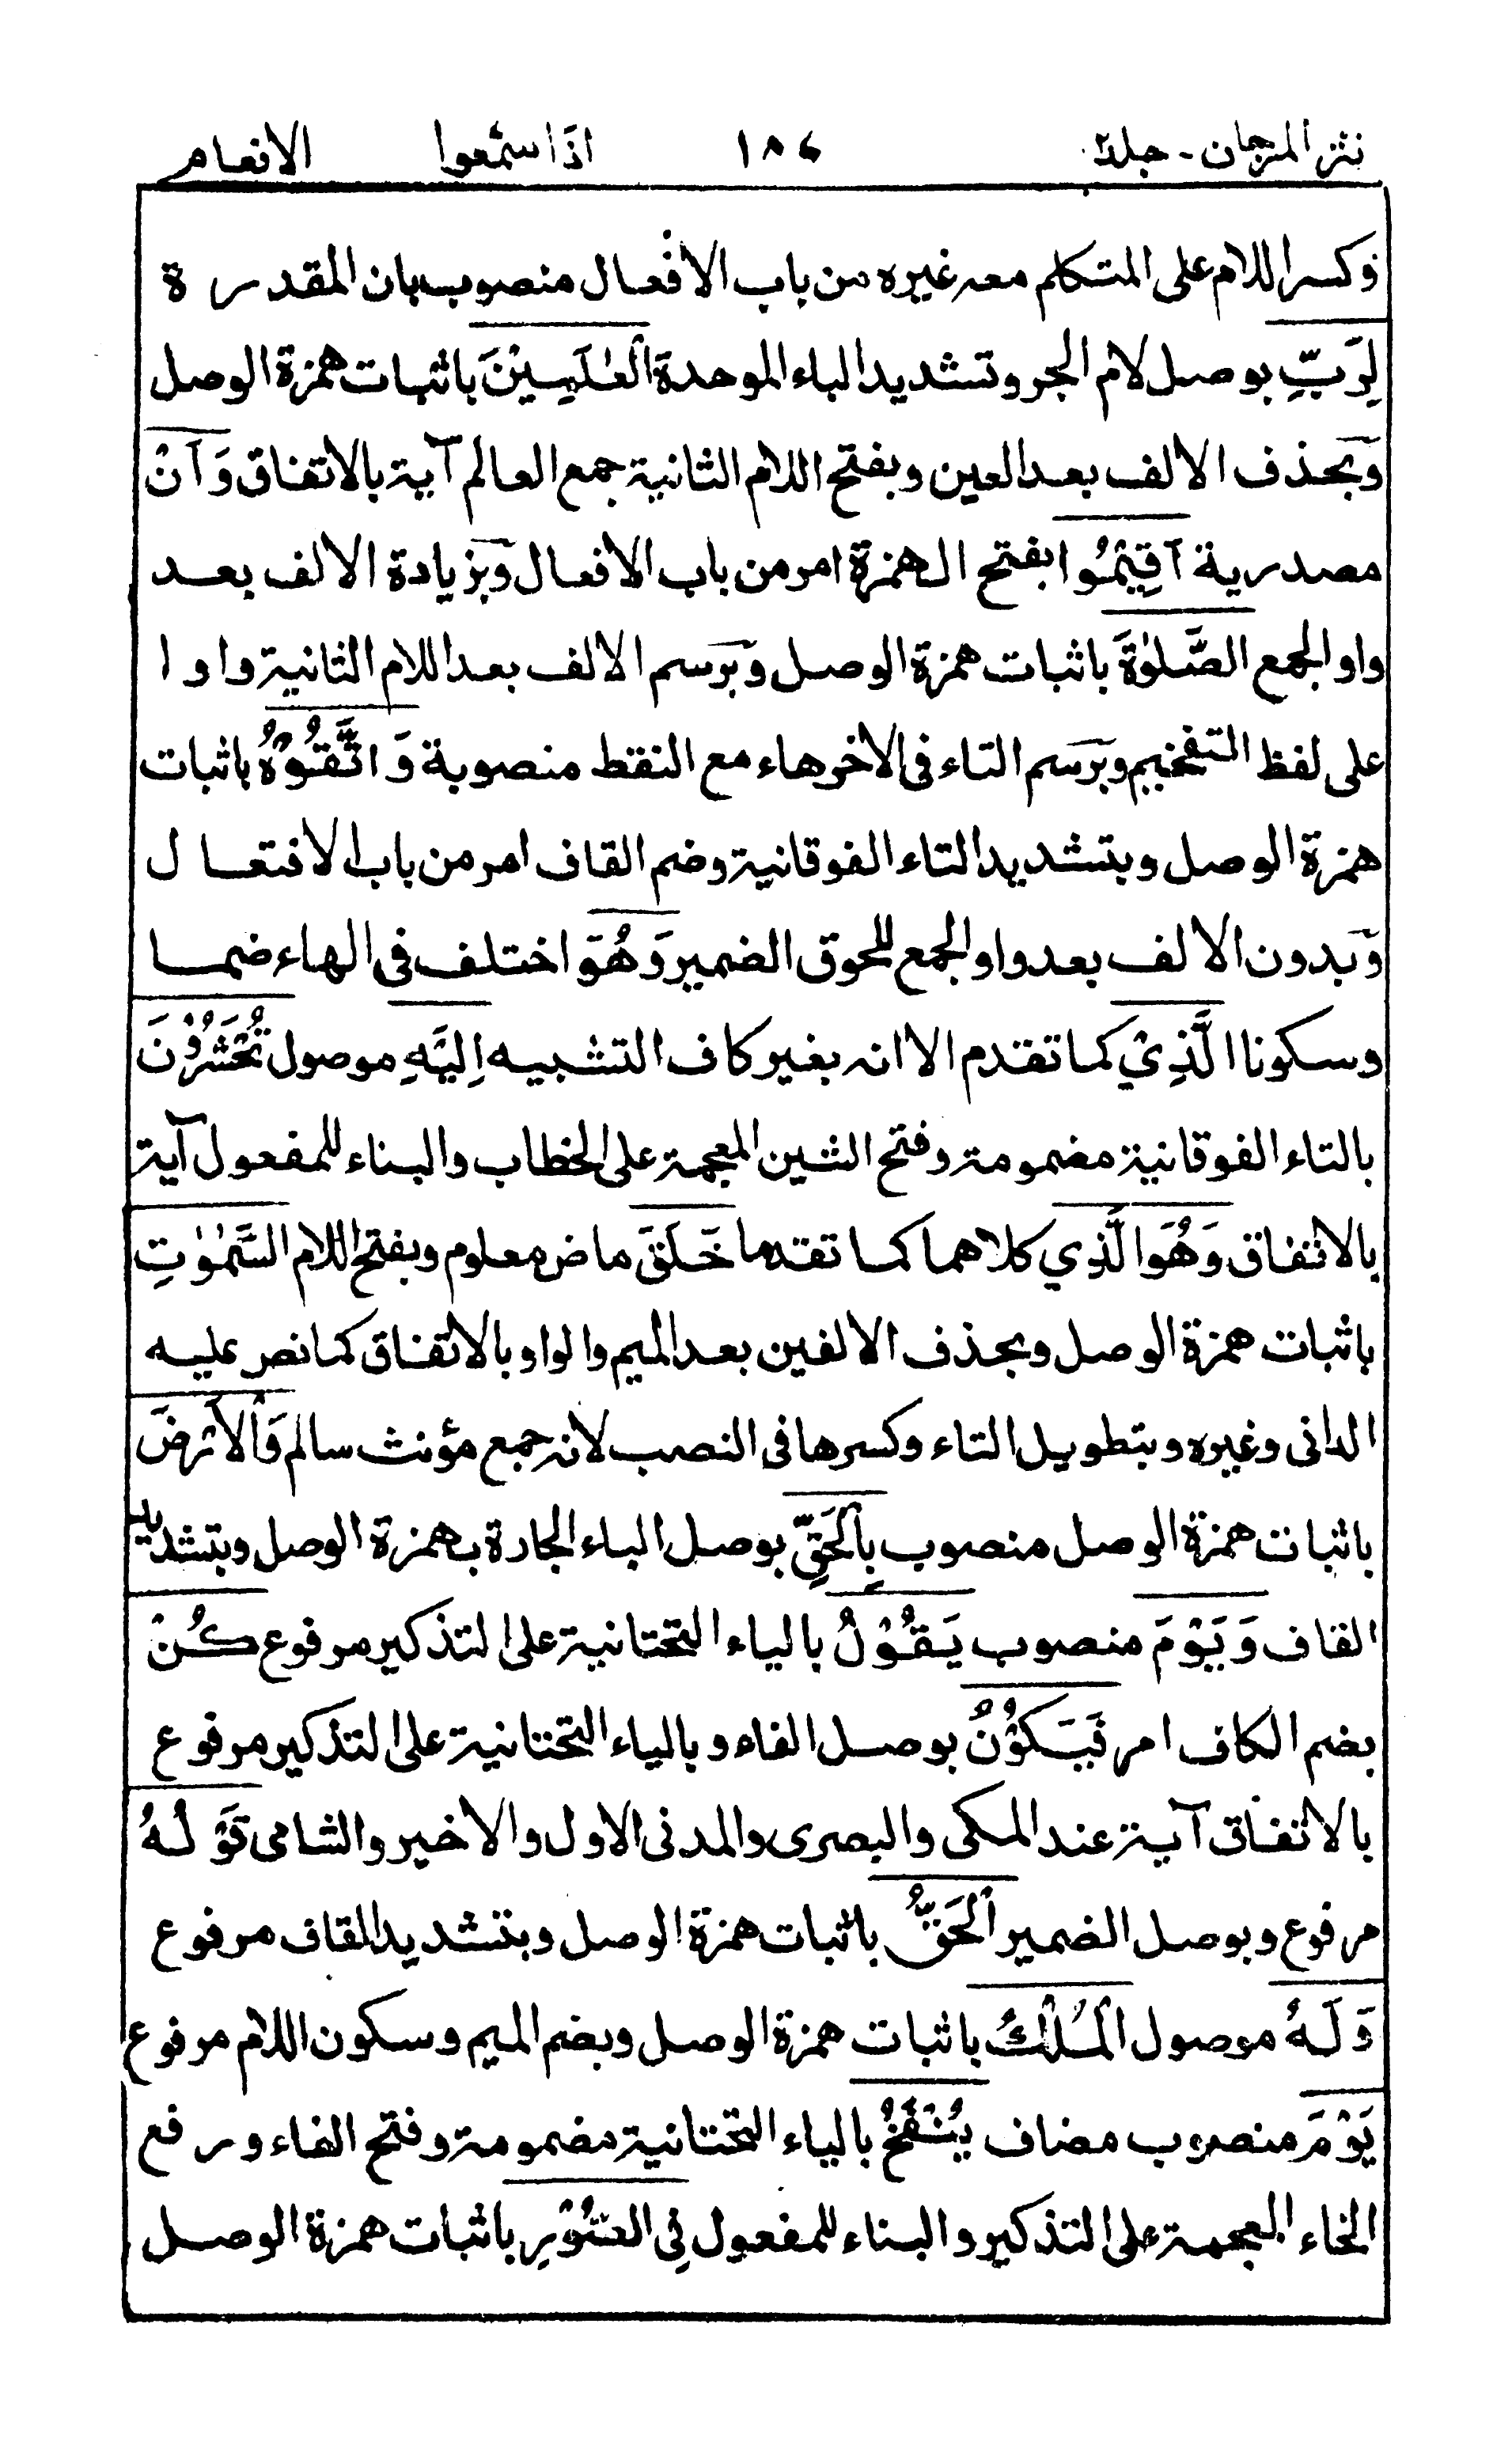 نثر المرجان - جلد٢ ١٨٤ اذا سمعوا الانعام
وكسر اللام على المتكلم معه غيره من باب الافعال منصوب بان المقدرة
لِرَبِّ بوصل لام الجر وتشديد الباء الموحدة الْعٰلَمِيْنَ باثبات همزة الوصل
وبحذف الالف بعد العين وبفتح اللام الثانية جمع العالم آية بالاتفاق وَ اَنْ
مصدرية اَقِيْمُوا بفتح الهمزة امر من باب الافعال وبزيادة الالف بعد
واو الجمع الصَّلٰوةَ باثبات همزة الوصل وبرسم الالف بعد اللام الثانية واوا
على لفظ التفخيم وبرسم التاء فى الاخر هاء مع النقط منصوبة وَ اتَّقُوْهُ باثبات
همزة الوصل وبتشديد التاء الفوقانية وضم القاف امر من باب الافتعال
وبدون الالف بعد واو الجمع للحوق الضمير وَهُوَ اختلف فى الهاء ضما
وسكونا الَّذِيْ كما تقدم الا انه بغير كاف التشبيه اِلَيْهِ موصول تُحْشَرُوْنَ
بالتاء الفوقانية مضمومة وفتح الشين المعجمة على الخطاب والبناء للمفعول آية
بالاتفاق وَهُوَ الَّذِي كلاهما كما تقدما خَلَقَ ماض معلوم وبفتح اللام السَّمٰوٰتِ
باثبات همزة الوصل وبحذف الالفين بعد الميم والواو بالاتفاق كما نص عليه
الدانى وغيره وبتطويل التاء وكسرها فى النصب لانه جمع مؤنث سالم وَالْاَرْضَ
باثبات همزة الوصل منصوب بِالْحَقِّ بوصل الباء الجارة بهمزة الوصل وبتشديد
القاف وَ يَوْمَ منصوب يَقُوْلُ بالياء التحتانية على التذكير مرفوع كُنْ
بضم الكاف امر فَيَكُوْنُ بوصل الفاء وبالياء التحتانية على التذكير مرفوع
بالاتفاق آية عند المكى والبصرى والمدنى الاول والاخير والشامى قَوْلُهُ
مرفوع وبوصل الضمير الْحَقُّ باثبات همزة الوصل وبتشديد القاف مرفوع
وَ لَهُ موصول الْمُلْكُ باثبات همزة الوصل وبضم الميم وسكون اللام مرفوع
يَوْمَ منصوب مضاف يُنْفَخُ بالياء التحتانية مضمومة وفتح الفاء ورفع
الخاء المعجمة على التذكير والبناء للمفعول فِى الصُّوْرِ باثبات همزة الوصل